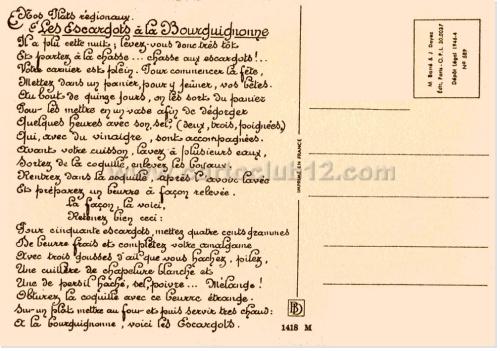 Nos Plats régionaux.
Les Escargots à la Bourguignonne
Il a plu cette nuit ; levez-vous donc très tôt
Et partez à la chasse ... chasse aux escargots !..
Votre carnier est plein. Pour commencer la fête,
Mettez dans un panier, pour y jeûner, vos bêtes.
Au bout de quinze jours, on les sort du panier
Pour les mettre en un vase afin de dégorger
Quelques heures avec son sel, (deux, trois, poignées)
Qui, avec du vinaigre, sont accompagnées.
Avant votre cuisson, lavez à plusieurs eaux,
Sortez de la coquille, enlevez les boyaux.
Rentrez dans la coquille, après l'avoir lavée
Et préparez un beurre à façon relevée.
La façon, la voici,
Retenez bien ceci :
Pour cinquante escargots, mettez quatre cents grammes
De beurre frais et complétez votre amalgame
Avec trois gousses d'ail que vous hachez, pilez,
Une cuillère de chapelure blanche et
Une de persil haché, sel, poivre ... Mélange !
Obturez la coquille avec ce beurre étrange.
Sur un plat mettre au four et puis servir très chaud :
A la bourguignonne, voici les Escargots.
1418 M
BD
IMPRIMÉ EN FRANCE
M. Barré & J. Dayez
Édit., Paris - O.P.L. 30.0037
Dépôt Légal 1946-4
N° 589
cartoclub12.com